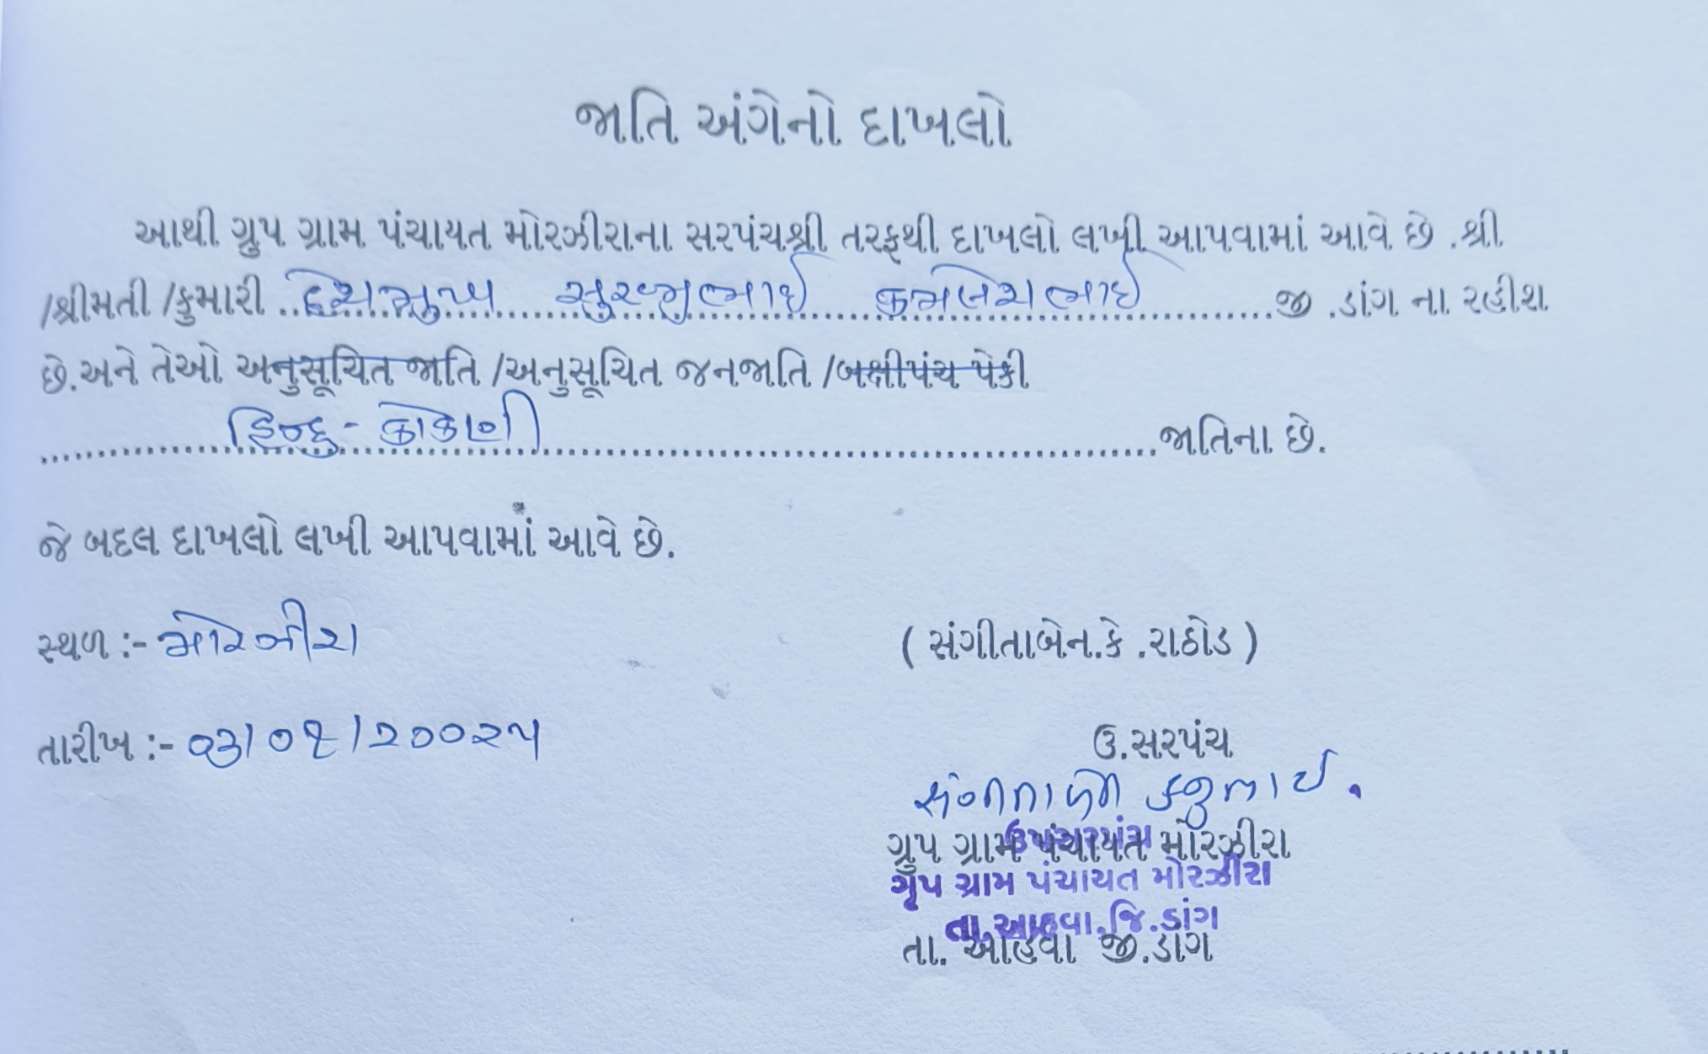 જાતિ અંગેનો દાખલો
આથી ગ્રુપ ગ્રામ પંચાયત મોરઝીરાના સરપંચશ્રી તરફથી દાખલો લખી આપવામાં આવે છે .શ્રી
/શ્રીમતી /કુમારી ..દેશમુખ સુરજભાઈ કમલેશભાઈ...........જી .ડાંગ ના રહીશ
છે.અને તેઓ અનુસૂચિત જાતિ /અનુસૂચિત જનજાતિ /બક્ષીપંચ પેકી
............હિન્દુ - કોકણી..............................જાતિના છે.
જે બદલ દાખલો લખી આપવામાં આવે છે.
સ્થળ :- મોરઝીરા
( સંગીતાબેન.કે .રાઠોડ )
તારીખ :- ૦૩/૦૧/૨૦૦૨૫
ઉ.સરપંચ
ગ્રુપ ગ્રામ પંચાયત મોરઝીરા
ઉપસરપંચ
ગૃપ ગ્રામ પંચાયત મોરઝીરા
તા.આહવા.જિ.ડાંગ
તા. આહવા જી.ડાંગ